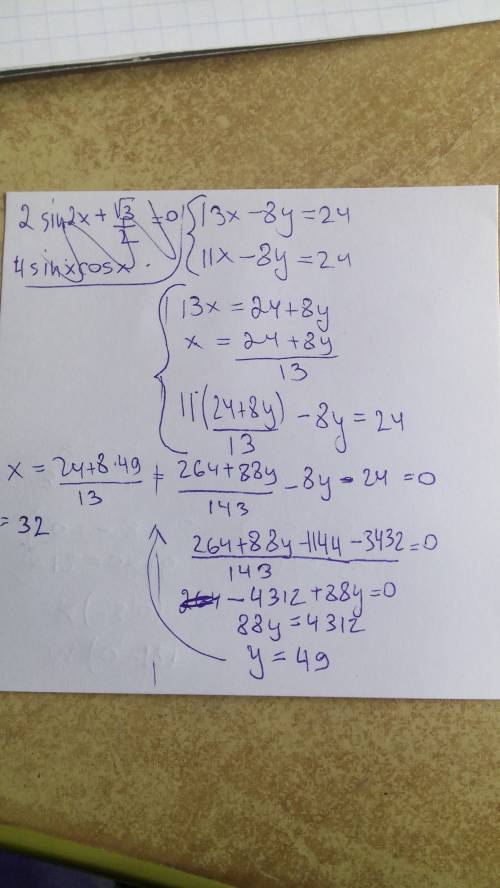 2 sin2x + √3/2 = 0
4 sinxcosx ·
{ 13x - 8y = 24
11x - 8y = 24
{ 13x = 24 + 8y
x = (24 + 8y)/13
11·(24 + 8y)/13 - 8y = 24
x = (24 + 8·49)/13 =
= 32
(264 + 88y)/143 - 8y - 24 = 0
(264 + 88y - 1144 - 3432)/143 = 0
- 4312 + 88y = 0
88y = 4312
y = 49